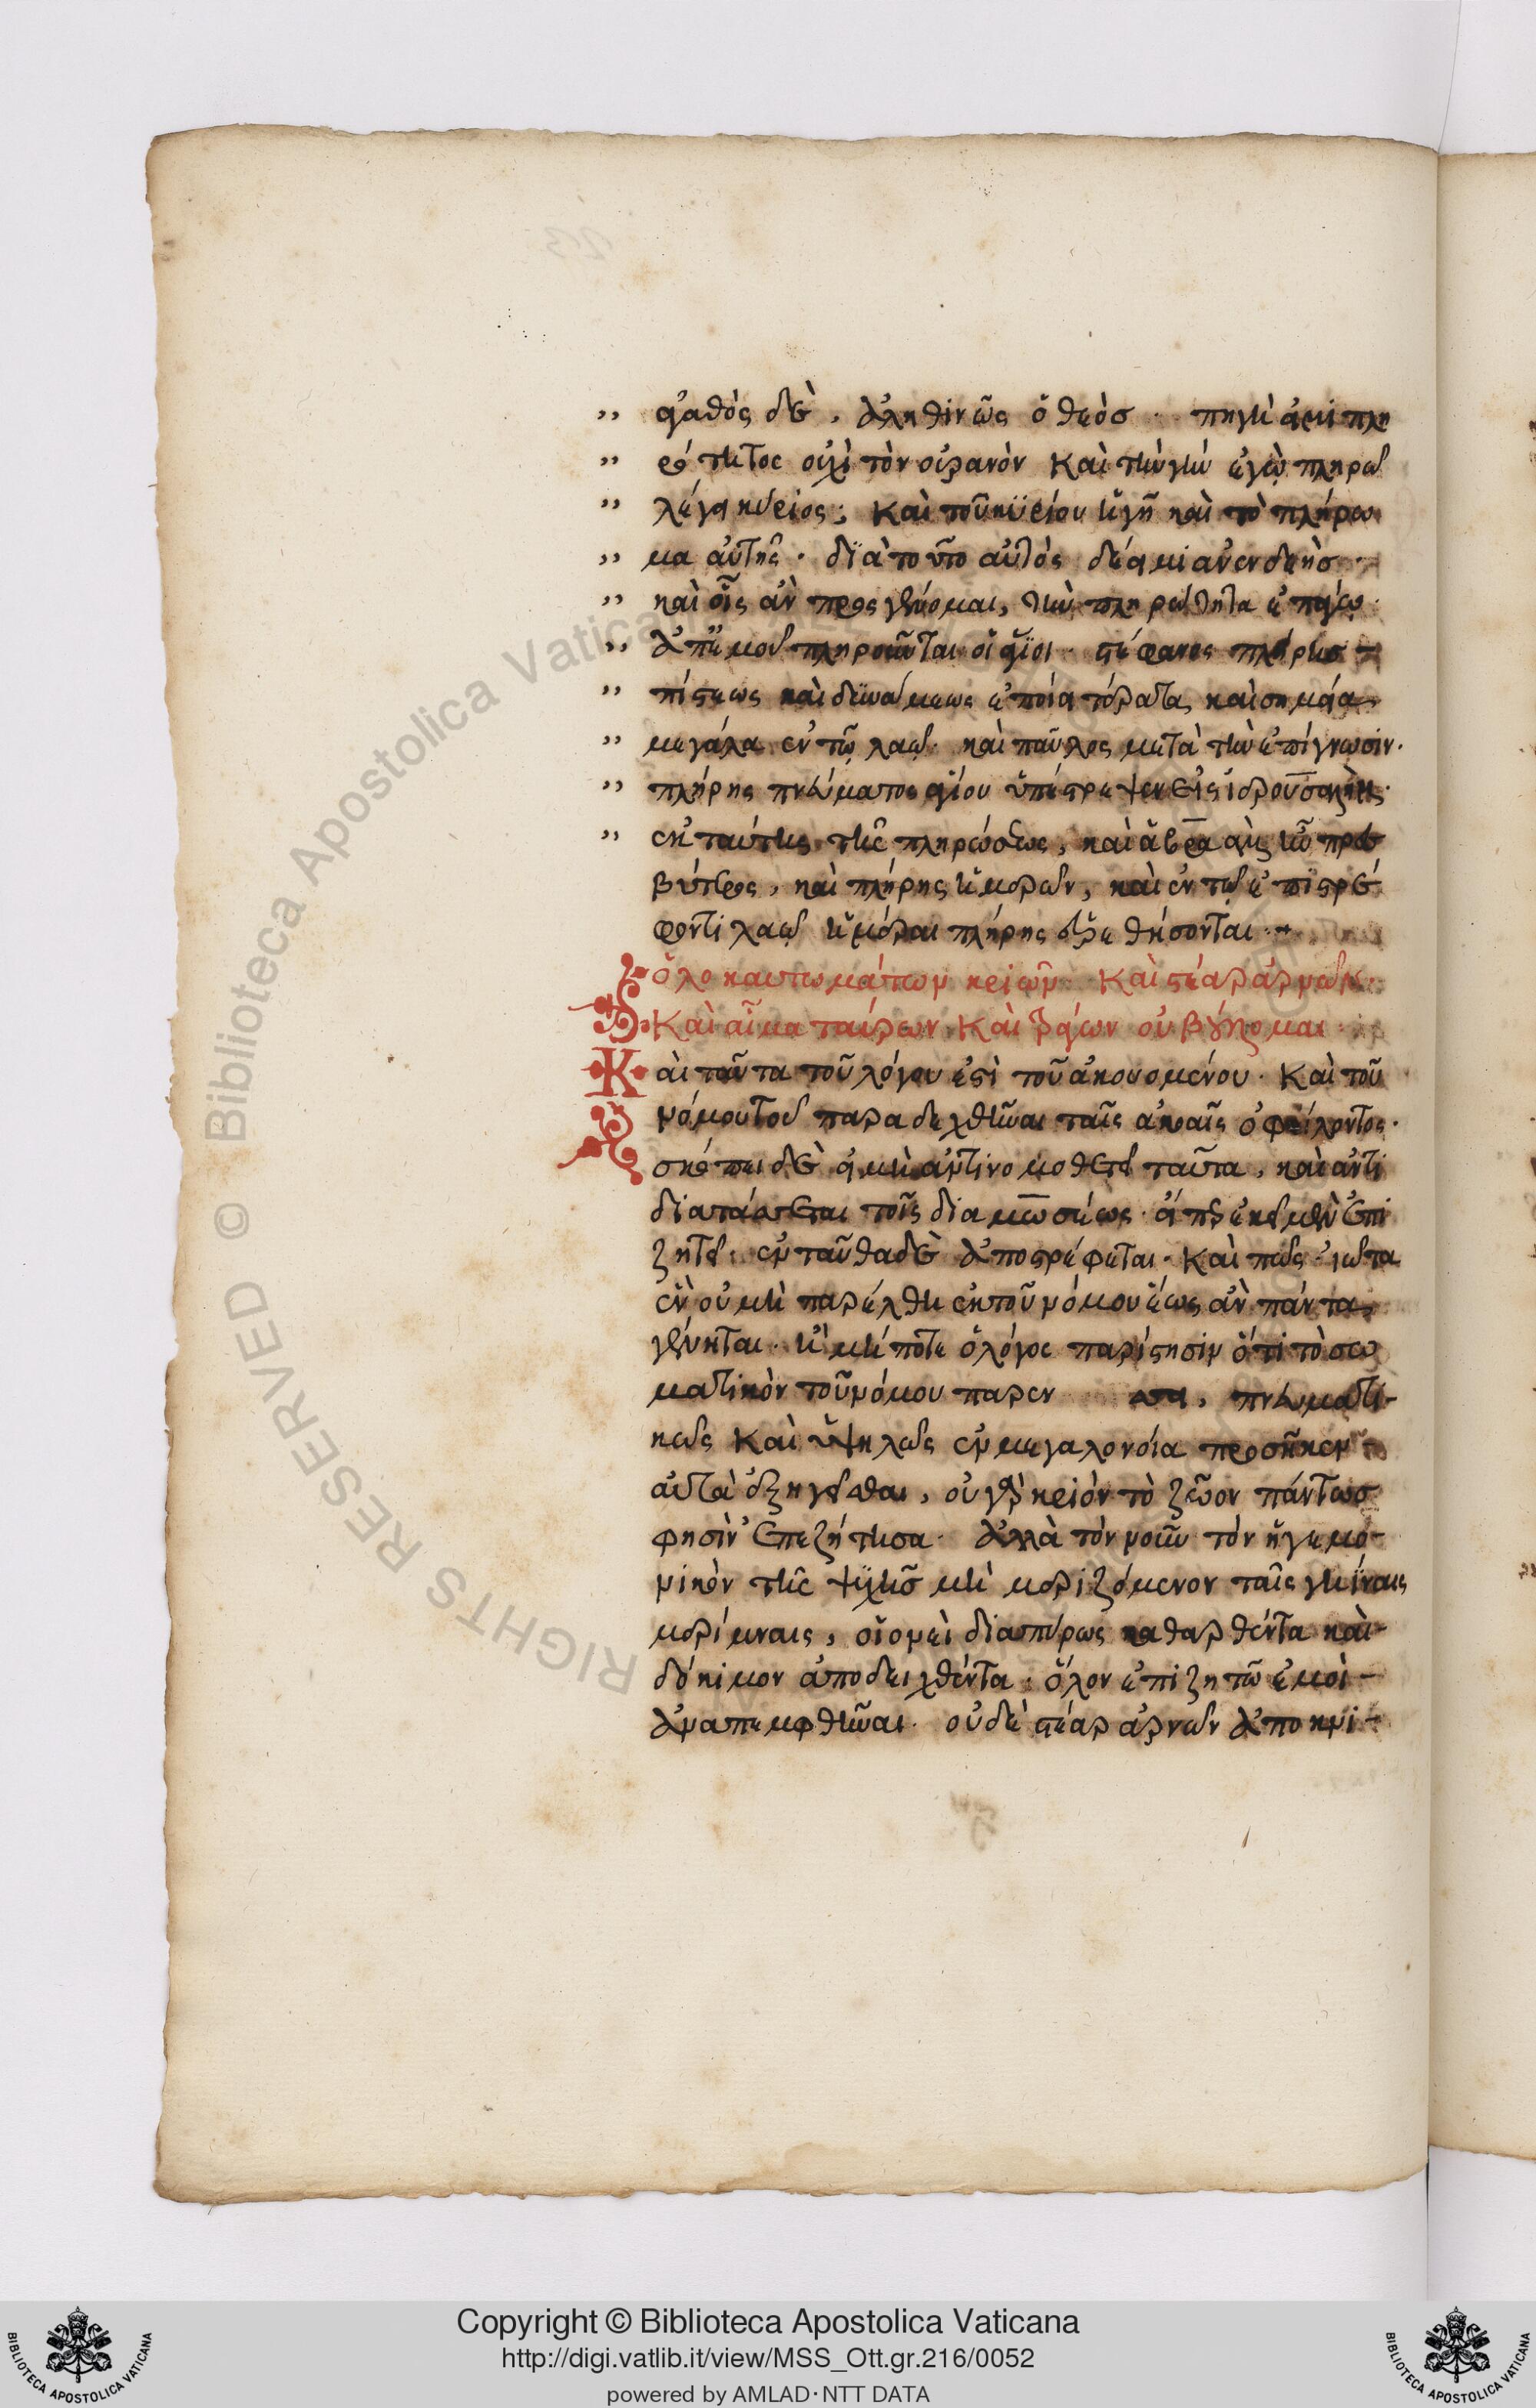 ,, ἀγαθὸς δὲ, ἀληθινῶς ὁ θεὸσ · πηγὴ ἀεὶ πλη
,, ρότητος οὐχὶ τὸν οὐρανὸν καὶ τὴν γῆν ἐγὼ πληρῶ
,, λέγει κύριος; καὶ τοῦ κυρίου ἡ γῆ καὶ τὸ πλήρω
,, μα αὐτῆς · διὰ τοῦτο αὐτὸς δέ εἰμι ἀνενδεὴσ ·
,, καὶ οἷς ἂν προσγένομαι, τὴν πληρότητα ἐπάγω ·
,, ἀπ' ἐμοῦ πληροῦνται οἱ ἅγιοι · στέφανος πλήρης
,, πίστεως καὶ δυνάμεως ἐποίει τέρατα καὶ σημεῖα
,, μεγάλα ἐν τῷ λαῷ · καὶ παῦλος μετὰ τὴν ἐπίγνωσιν ·
,, πλήρης πνεύματος ἁγίου ὑπέστρεψεν εἰς ἱερουσαλὴμ ·
,, ἐκ ταύτης τῆς πληρώσεως, καὶ ἀβραὰμ ἦν πρεσ
βύτερος, καὶ πλήρης ἡμερῶν, καὶ ἐν τῷ ἐπιστρέ
φοντι λαῷ ἡμέραι πλήρης εὑρεθήσονται ·
ὁλοκαυτωμάτων κριῶν · καὶ στέαρ ἀρνῶν ·
καὶ αἷμα ταύρων καὶ τράγων οὐ βούλομαι
Καὶ ταῦτα τοῦ λόγου ἐστὶ τοῦ ἀκουομένου · καὶ τοῦ
νόμου τοῦ παραδεχθῆναι ταῖς ἀκοαῖς ὀφείλοντος ·
σκόπει δὲ εἰ μὴ ἀντινομοθετεῖ ταῦτα, καὶ ἀντι
διατάσσεται τοῖς διὰ μωσέως · ἅπερ ἐκεῖ μὲν ἐπι
ζητεῖ · ἐνταῦθα δὲ ἀποστρέφεται · καὶ πῶς ἰῶτα
ἓν οὐ μὴ παρέλθη ἐκ τοῦ νόμου ἕως ἂν πάντα
γένηται · ἢ μήποτε ὁ λόγος παρίστησιν ὅτι τὸ σω
ματικὸν τοῦ νόμου παρεν πνευματι-
κῶς καὶ ὑψηλῶς ἐν μεγαλονοία προσῆκεν
αὐτὰ ἐξηγεῖσθαι, οὐ γὰρ κριὸν τὸ ζῶον πάντωσ
φησὶν ἐπεζήτησα · ἀλλὰ τὸν νοῦν τὸν ἡγεμο-
νικὸν τῆς ψυχῆσ μὴ μεριζόμενον ταῖς γηΐναις
μερίμναις, οἱονεὶ διαπύρως καθαρθέντα καὶ
δόκιμον ἀποδειχθέντα · ὅλον ἐπιζητῶ ἐμοὶ -
ἀναπεμφθῆναι · οὐδὲ στέαρ ἀρνῶν ἀποκνι-
Copyright © Biblioteca Apostolica Vaticana
http://digi.vatlib.it/view/MSS_Ott.gr.216/0052
powered by AMLAD·NTT DATA